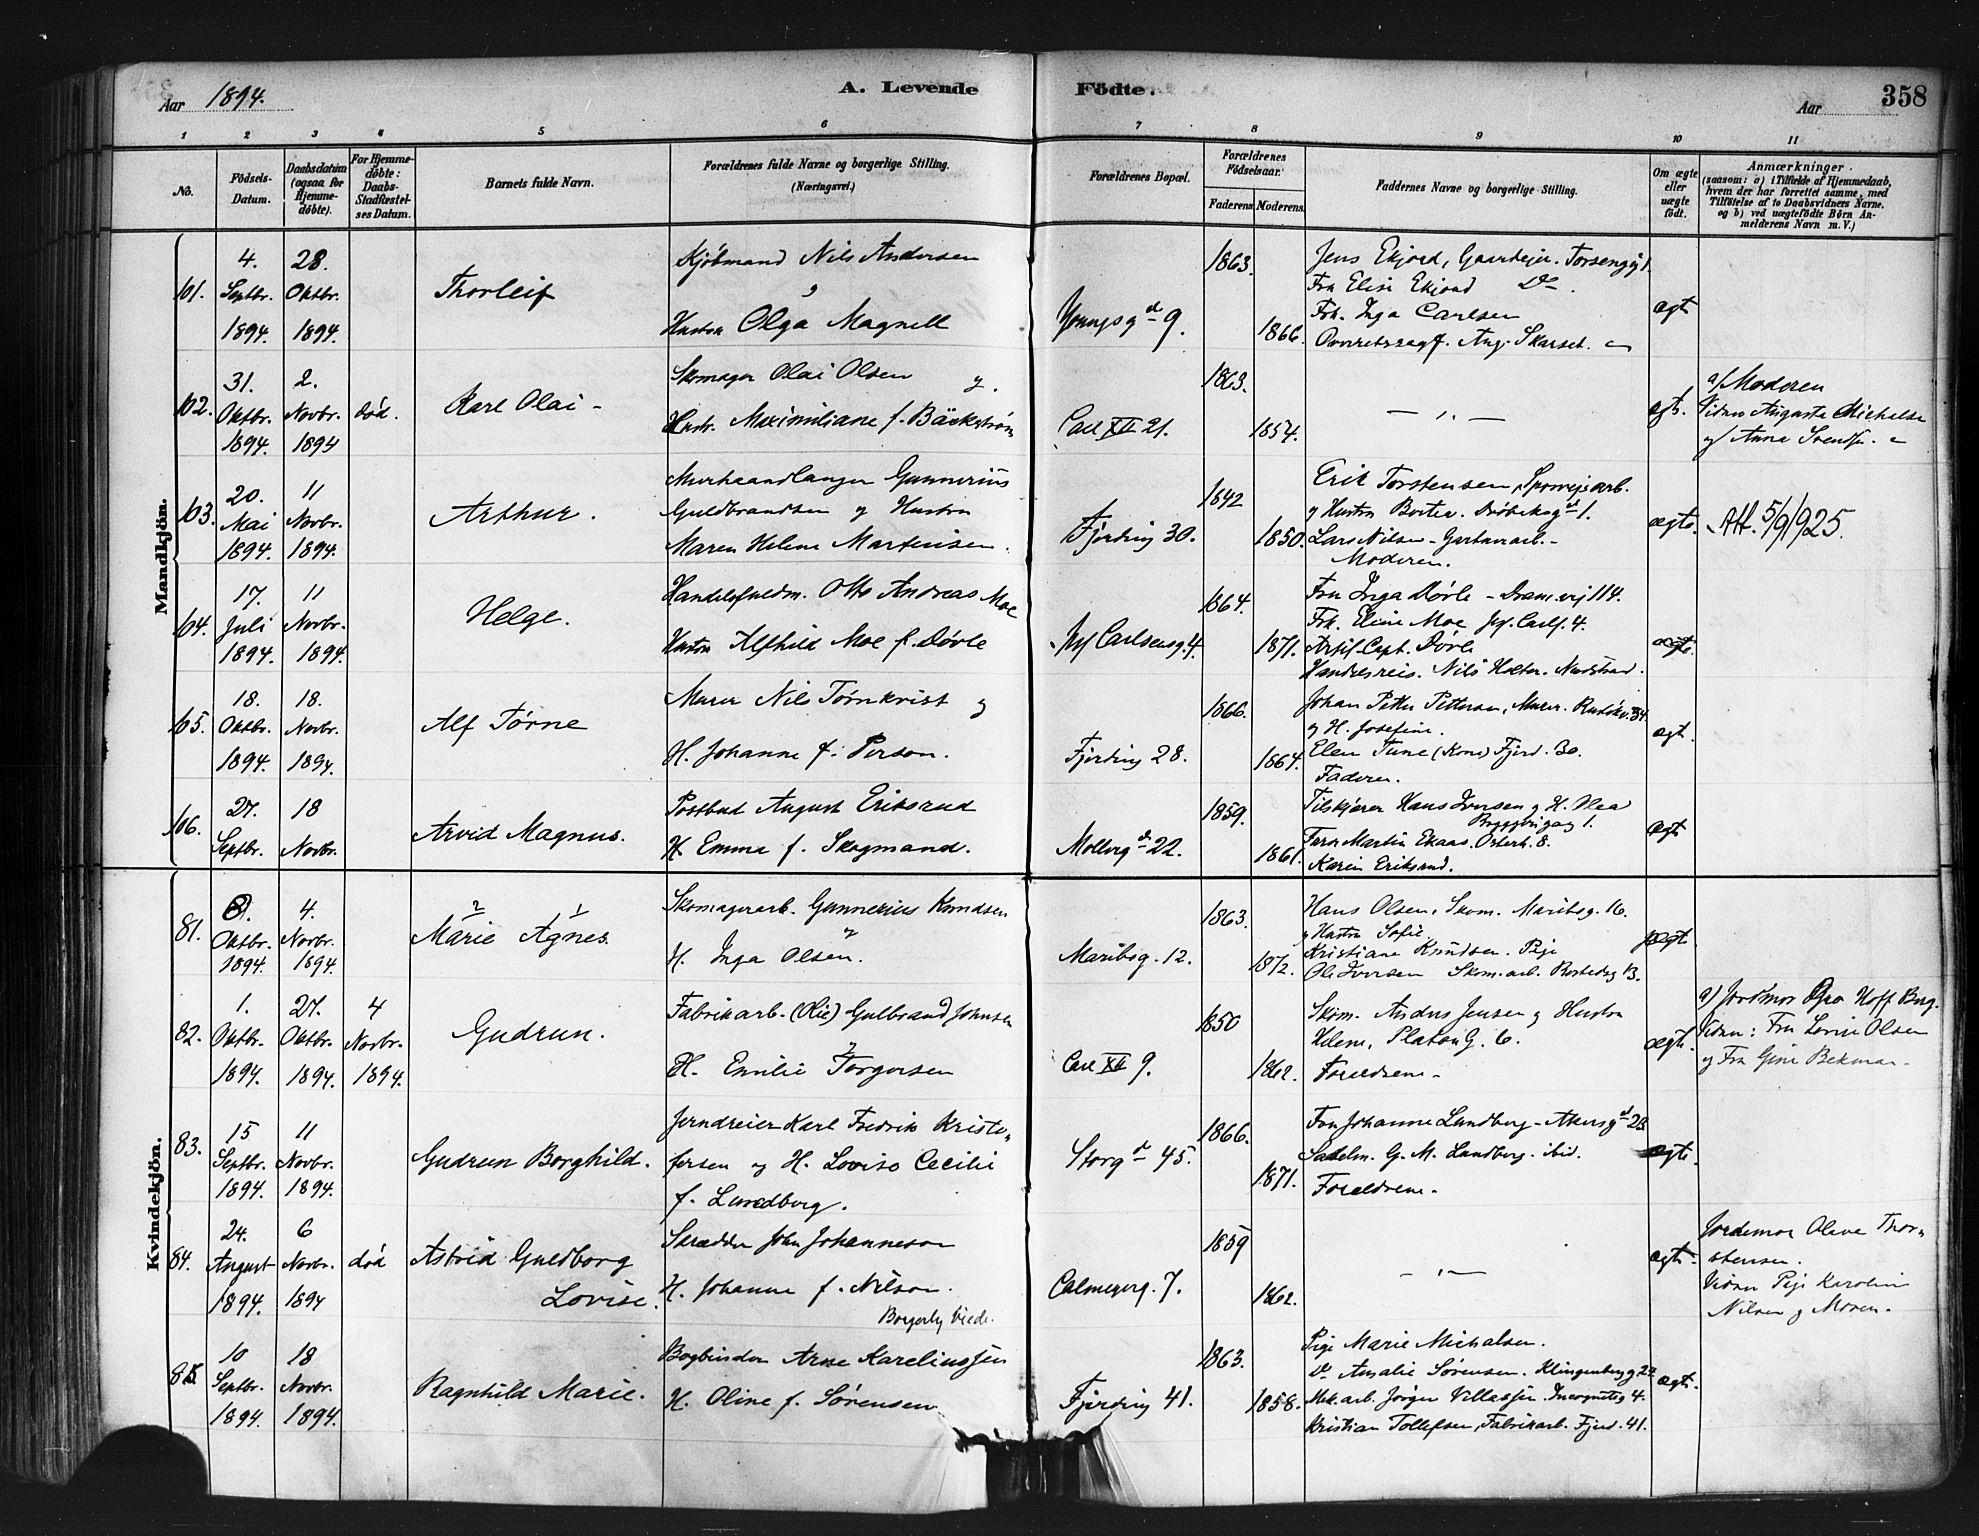 Aar 1894.
A. Levende
Födte.
Aar
358
1 2 3 4 5 6 7 8 9 10 11
No.
Födsels-Datum.
Daabsdatum (ogsaa for Hjemme-döbte).
For Hjemme-döbte: Daabs-Stadfæstel-ses Datum.
Barnets fulde Navn.
Forældrenes fulde Navne og borgerlige Stilling. (Næringsvei.)
Forældrenes Bopæl.
Forældrenes Födselsaar.
Faderens. Moderens.
Faddernes Navne og borgerlige Stilling.
Om ægte eller uægte födt.
Anmærkninger
(saasom: a) i Tilfælde af Hjemmedaab, hvem der har forrettet samme, med Tilföielse af to Daabsvidners Navne, og b) ved uægtefödte Börn An-melderens Navn m. V.)
Mandkjön.
101.
4. Septbr. 1894
28. Oktbr. 1894.
Thorleif
Kjøbmand Nils Andersen
Hustru Olga Magnell
Youngsgd 9.
1863.
1866.
Jens Ekjord, Gaardejer.
Fru Elise Ekjord Do.
Frk. Inga Carlsen
Aug. Skarset.
ægt
102.
31. Oktbr. 1894
2. Novbr. 1894
død.
Karl Olai
Skomager Olai Olsen
Hustr. Maximiliane f. Bäckström
Carl XII 21.
1863.
1854.
— „ —
ægt.
a/ Moderen
Augusta Michalse
Anna Svends.
103.
20. Mai 1894.
11 Novbr. 1894.
Arthur.
Murhaandlanger Gunnerius
Guldbrandsen og Hustru
Maren Helene Martinsen.
Fjerding 30.
1842
1850.
Erik Torstensen, Sporvejsarb.
Lars Nilsen - Gartnerarb. -
Moderen.
ægte.
Att. 5/9/925.
104.
17. Juli 1894
11 Novbr. 1894.
Helge.
Handelsfuldm. Otto Andreas Moe
Hustru Alfhild Moe f. Døvle
Carlsensg. 4.
1864.
1871.
Fru Inga Døvle - Dram.vej 114.
Frk. Eline Moe 4.
Capt. Døvle
Handelsreis. Nils Holter. Nordstrand.
ægte.
105.
18. Oktbr. 1894
18. Novbr. 1894.
Alf Tørne
Murer Nils Tørnkvist og
H. Johanne f. Person.
Fjerding 28.
1866.
1864.
Johan Petter Pettersen, Murer.
og H. Josefine.
Elen Tune (Kone) Fjerd. 30.
Faderen.
ægt.
106.
27. Septbr.
18 Novbr.
Arvid Magnus.
Postbud August Eriksrud
H. Emma f. Skogmand.
Mollergd 22.
1859.
1861.
Hans Iversen og H. Olea
Martin Ekaas. Osterh. 8.
Karin Eriksrud.
Ægt
Kvindekjön.
81.
8. Oktbr. 1894.
4. Novbr. 1894.
2 1
Marie Agnes.
Skomagerarb. Gunnerius Knudsen
H. Inga Olsen.
Maribog. 12.
1863.
1872.
Hans Olsen, Skom. Maribog. 16.
og Hustru Sofie.
Kristiane Knudsen. Pige
Ole Iversen Skom.arb. 13.
Ægt.
82.
1. Oktbr. 1894.
27. Oktbr. 1894.
4 Novbr. 1894.
Gudrun.
Fabrikarb. Gulbrand Johnsen
H. Emilie Torgersen
Carl XII 9.
1850
1862.
Skom. Anders Jensen og Hustru
Helene, Platous G. 6.
Forældrene -
ægt.
a/ Jordmor Gra Hoff Berg.
Vidner: Fru Lovise Olsen
og Fru Gine Bekman -
83.
15 Septbr. 1894.
11 Novbr. 1894.
Gudrun Borghild.
Jerndreier Karl Fredrik Kristo-
fersen og H. Lovise Cecilie
f. Lundberg.
Storgd 45.
1866.
1871.
Fru Johanne Lundberg - Akersgd 28
Sadelm. G. M. Lundberg. ibid.
Forældrene -
ægte
84.
24. August 1894.
6 Novbr. 1894
død
Astrid Guldborg
Lovise.
Skrædder John Johannesen
H. Johanne f. Nilson.
Borgerlig Viede.
Calmeyerg. 7.
1859
1862.
— „ —
ægt.
Jordemor Olava Thor-
stensen.
Vidner Pige Karoline
Nilsen og Moren.
85.
10 Septbr. 1894
18 Novbr. 1894.
Ragnhild Marie.
Bogbinder Arne Kareliussen
H. Oline f. Sørensen
Fjerding 41.
1863.
1858.
Pige Marie Michalsen.
Do. Amalie Sørensen. Klingenbergg 27
Mek.arb. Jørgen Incognitog 4.
Kristian Tollefsen, Fabrikarb. Fjerd. 41.
ægt.